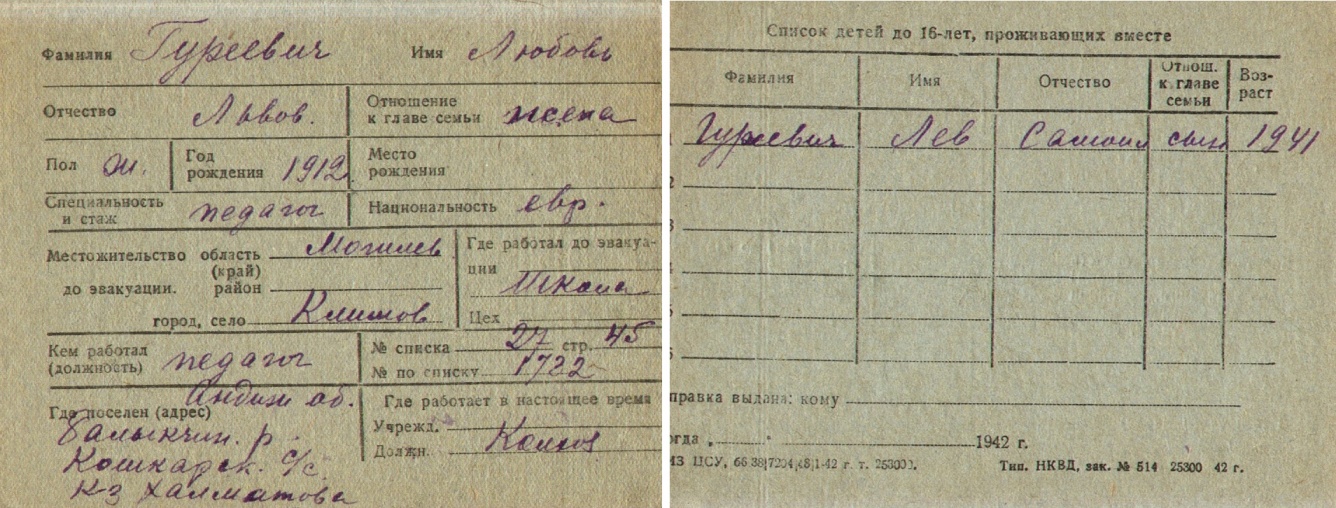 Фамилия Гуревич Имя Любовь
Отчество Львов. Отношение к главе семьи жена
Пол ж. Год рождения 1912 Место рождения
Специальность и стаж педагог Национальность евр.
Местожительство область (край) Могилев
до эвакуации. район
город, село Климов
Где работал до эвакуа-
ции Школа
Цех
Кем работал (должность) педагог
№ списка 27 стр. 45
№ по списку 1722
Где поселен (адрес) Андиж об.
Балыкчин. р.
Кошкарск. с/с.
к-з Халматова
Где работает в настоящее время
Учрежд.
Должн. Колхоз
Список детей до 16-лет, проживающих вместе
Фамилия Имя Отчество Отнош. к главе семьи Воз-раст
Гуревич Лев Самоил сын 1941
2
3
4
5
правка выдана: кому
огда „ " 1942 г.
ИЗ ЦСУ, т. 253000. Тип. НКВД, зак. № 514 25300 42 г.